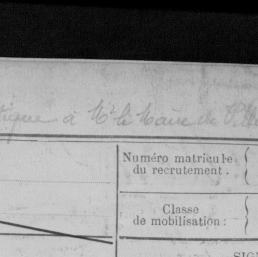 à Mr le Maire de
Numéro matricule
du recrutement.
Classe
de mobilisation :
SIG